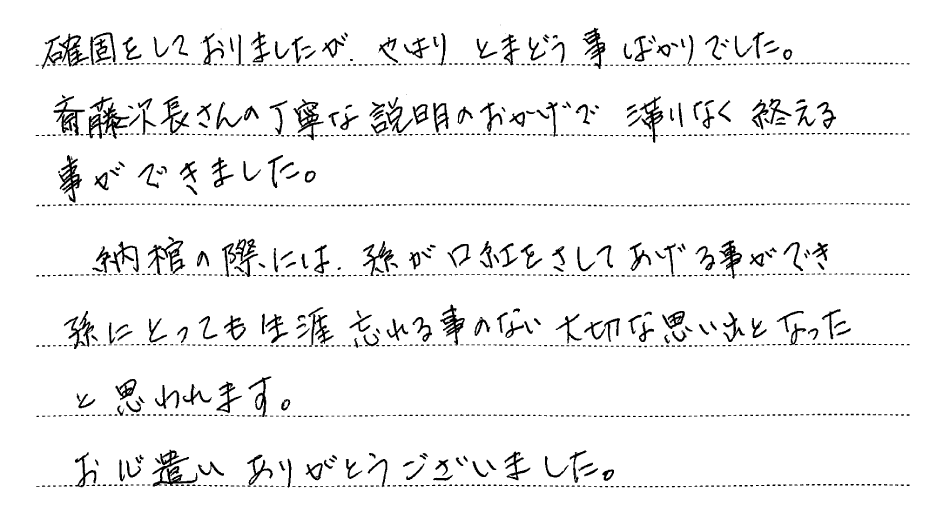 確固をしておりましたが、やはり とまどう事ばかりでした。
斎藤次長さんの丁寧な説明のおかげで 滞りなく終える
事ができました。
納棺の際には、孫が口紅をさしてあげる事ができ
孫にとっても生涯忘れる事のない大切な思い出となった
と思われます。
お心遣い ありがとうございました。